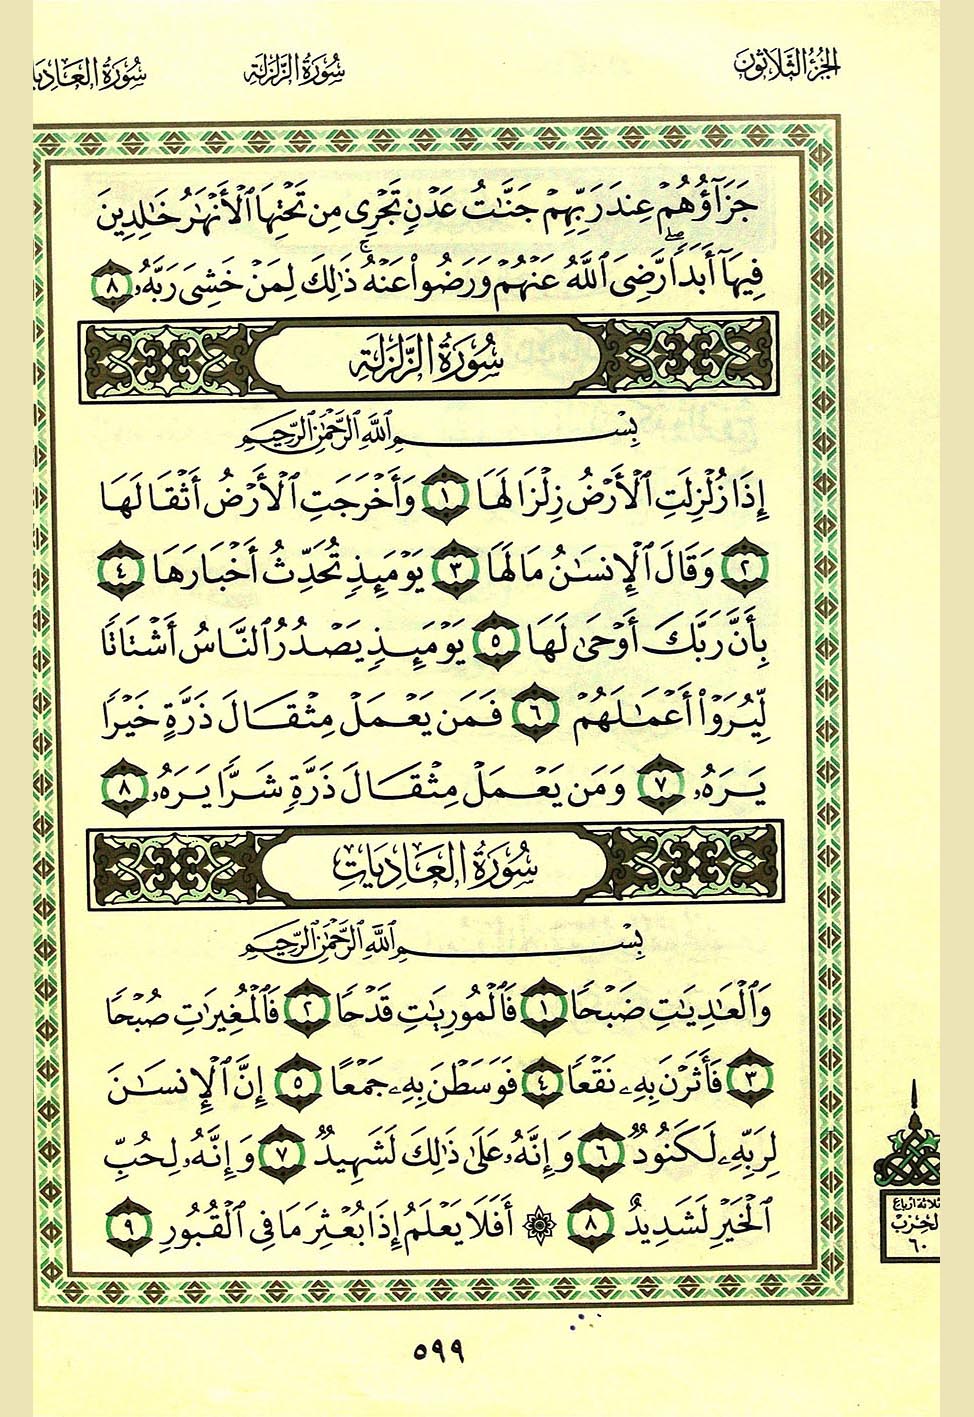 الجزء الثلاثون
سورة الزلزلة
سورة العاديا
جَزَآؤُهُمۡ عِندَ رَبِّهِمۡ جَنَّٰتُ عَدۡنٖ تَجۡرِي مِن تَحۡتِهَا ٱلۡأَنۡهَٰرُ خَٰلِدِينَ
فِيهَآ أَبَدٗاۖ رَّضِيَ ٱللَّهُ عَنۡهُمۡ وَرَضُواْ عَنۡهُۚ ذَٰلِكَ لِمَنۡ خَشِيَ رَبَّهُۥ ٨
سُورَةُ الزَّلْزَلَةِ
بِسۡمِ ٱللَّهِ ٱلرَّحۡمَٰنِ ٱلرَّحِيمِ
إِذَا زُلۡزِلَتِ ٱلۡأَرۡضُ زِلۡزَالَهَا ١ وَأَخۡرَجَتِ ٱلۡأَرۡضُ أَثۡقَالَهَا
٢ وَقَالَ ٱلۡإِنسَٰنُ مَا لَهَا ٣ يَوۡمَئِذٖ تُحَدِّثُ أَخۡبَارَهَا ٤
بِأَنَّ رَبَّكَ أَوۡحَىٰ لَهَا ٥ يَوۡمَئِذٖ يَصۡدُرُ ٱلنَّاسُ أَشۡتَاتٗا
لِّيُرَوۡاْ أَعۡمَٰلَهُمۡ ٦ فَمَن يَعۡمَلۡ مِثۡقَالَ ذَرَّةٍ خَيۡرٗا
يَرَهُۥ ٧ وَمَن يَعۡمَلۡ مِثۡقَالَ ذَرَّةٖ شَرّٗا يَرَهُۥ ٨
سُورَةُ العَادِيَاتِ
بِسۡمِ ٱللَّهِ ٱلرَّحۡمَٰنِ ٱلرَّحِيمِ
وَٱلۡعَٰدِيَٰتِ ضَبۡحٗا ١ فَٱلۡمُورِيَٰتِ قَدۡحٗا ٢ فَٱلۡمُغِيرَٰتِ صُبۡحٗا
٣ فَأَثَرۡنَ بِهِۦ نَقۡعٗا ٤ فَوَسَطۡنَ بِهِۦ جَمۡعًا ٥ إِنَّ ٱلۡإِنسَٰنَ
لِرَبِّهِۦ لَكَنُودٞ ٦ وَإِنَّهُۥ عَلَىٰ ذَٰلِكَ لَشَهِيدٞ ٧ وَإِنَّهُۥ لِحُبِّ
ٱلۡخَيۡرِ لَشَدِيدٌ ٨ ۞ أَفَلَا يَعۡلَمُ إِذَا بُعۡثِرَ مَا فِي ٱلۡقُبُورِ ٩
ثلاثة أرباع
الحزب
٦٠
٥٩٩